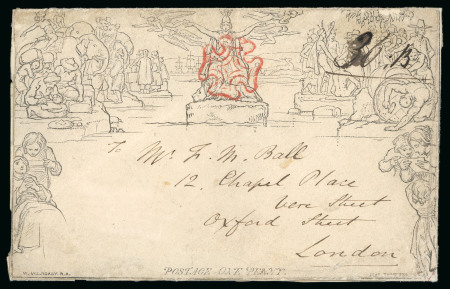 To Mr. F. M. Ball
12. Chapel Place
Vere Street
Oxford Street
London
POSTAGE ONE PENNY.
W. MULREADY. R.A.